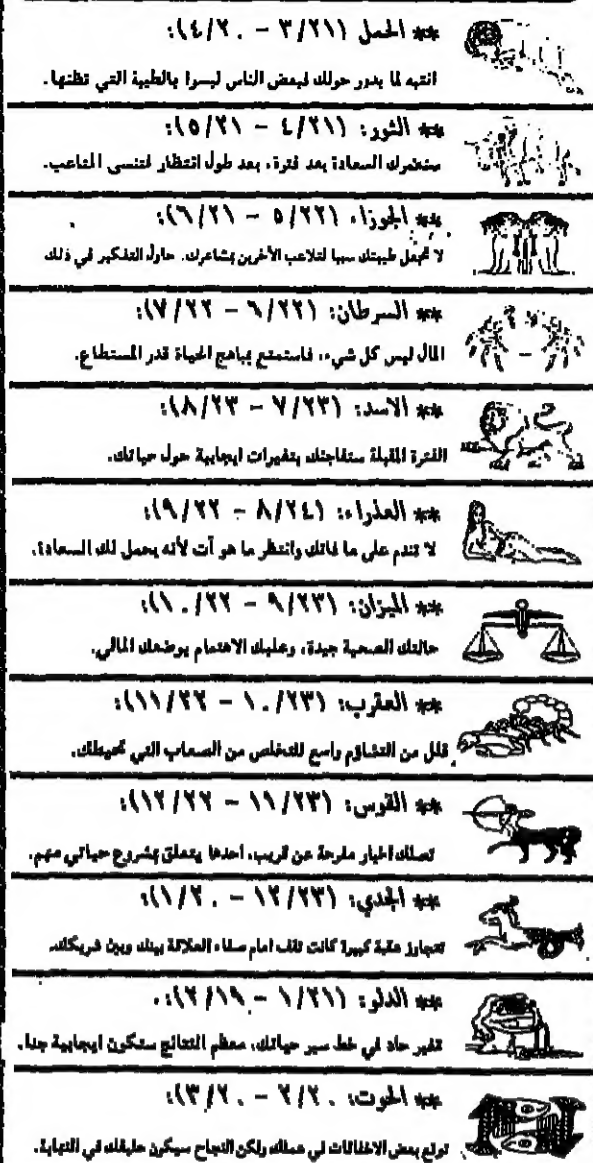 ** الحمل (٣/٢١ - ٤/٢٠):
انتبه لما يدور حولك فبعض الناس ليسوا بالطيبة التي تظنها.
** الثور: (٤/٢١ - ٥/٢١):
ستغمرك السعادة بعد فترة، بعد طول انتظار لتنسى المتاعب.
** الجوزاء (٥/٢٢ - ٦/٢١):
لا تجعل طيبتك سببا لتلاعب الأخرين بمشاعرك. حاول التفكير في ذلك
** السرطان: (٦/٢٢ - ٧/٢٢):
المال ليس كل شيء، فاستمتع بمباهج الحياة قدر المستطاع.
** الاسد: (٧/٢٣ - ٨/٢٣):
الفترة المقبلة ستفاجئك بتغيرات ايجابية حول حياتك.
** العذراء: (٨/٢٤ - ٩/٢٢):
لا تندم على ما فاتك وانتظر ما هو آت لأنه يحمل لك السعادة.
** الميزان: (٩/٢٣ - ١٠/٢٢):
حالتك الصحية جيدة، وعليك الاهتمام بوضعك المالي.
** العقرب: (١٠/٢٣ - ١١/٢٢):
قلل من التشاؤم واسع للتخلص من الصعاب التي تحيطك.
** القوس: (١١/٢٣ - ١٢/٢٢):
تصلك اخبار مفرحة عن قريب، احدها يتعلق بمشروع حياتي مهم.
** الجدي: (١٢/٢٣ - ١/٢٠):
تتجاوز عقبة كبيرة كانت تقف امام صفاء العلاقة بينك وبين شريكك.
** الدلو: (١/٢١ - ٢/١٩):
تغير حاد في خط سير حياتك، معظم النتائج ستكون ايجابية جدا.
** الحوت: ٢/٢٠ - ٣/٢٠):
توقع بعض الاخفاقات في عملك ولكن النجاح سيكون حليفك في النهاية.